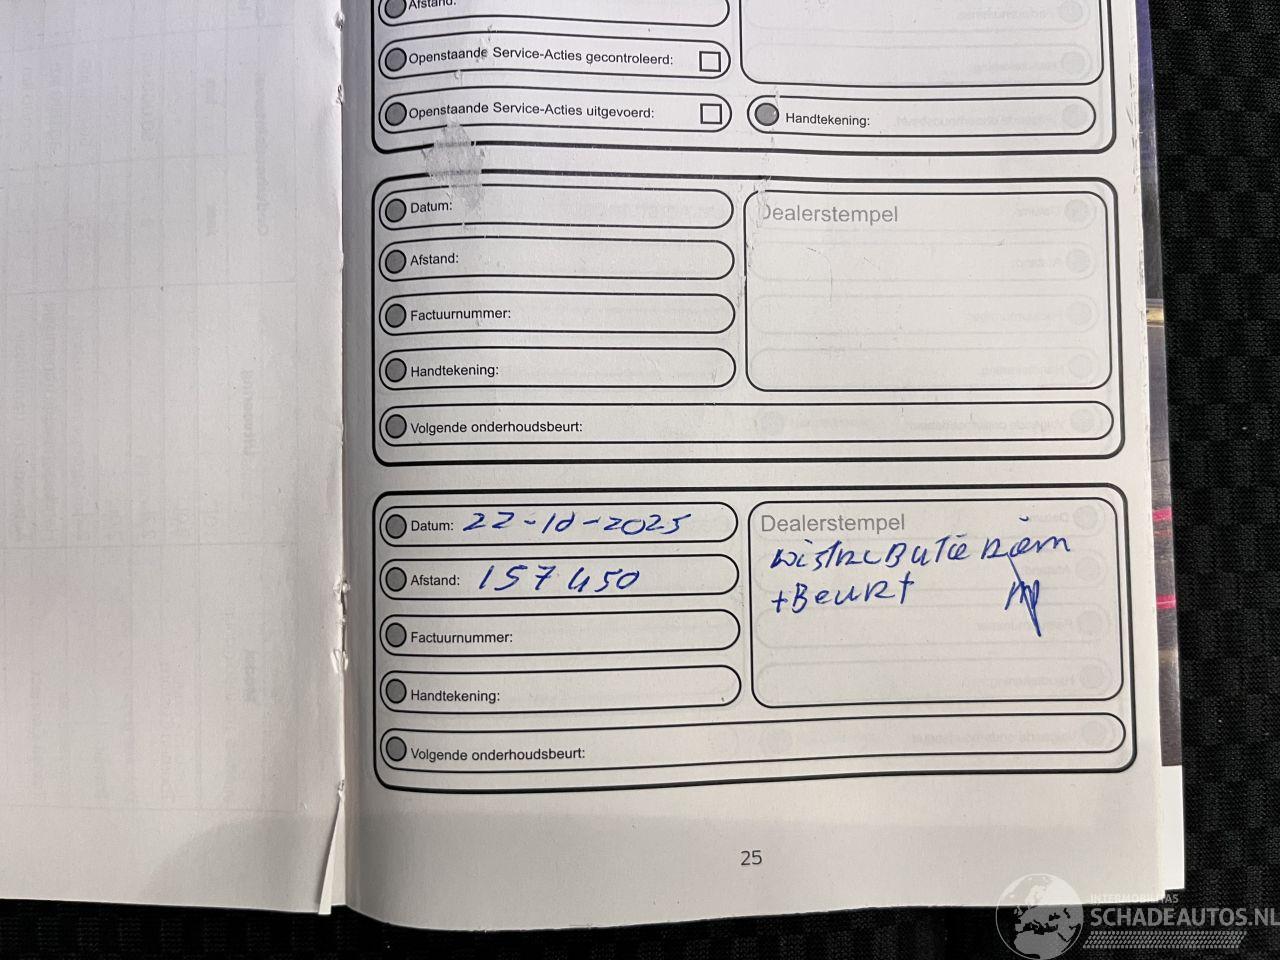 Afstand:
Openstaande Service-Acties gecontroleerd:
Openstaande Service-Acties uitgevoerd:
Handtekening:
Datum:
Dealerstempel
Afstand:
Factuurnummer:
Handtekening:
Volgende onderhoudsbeurt:
Datum: 22-10-2025
Dealerstempel
DISTRIBUTIE RIEM
+BEURT
Afstand: 157450
Factuurnummer:
Handtekening:
Volgende onderhoudsbeurt:
25
INTERMOBILITAS
SCHADEAUTOS.NL